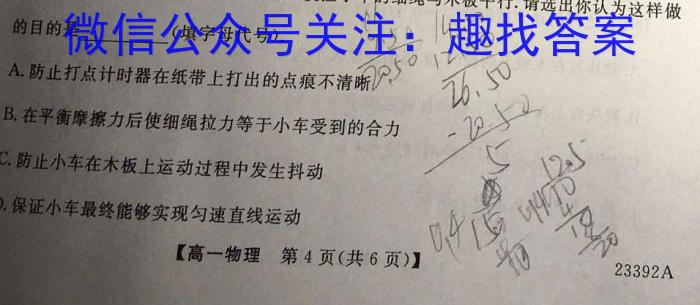 的细绳与木板平行.请选出你认为这样做
的目的是________(填字母代号)
微信公众号关注：趣找答案
A.防止打点计时器在纸带上打出的点痕不清晰
B.在平衡摩擦力后使细绳拉力等于小车受到的合力
C.防止小车在木板上运动过程中发生抖动
D.保证小车最终能够实现匀速直线运动
20.50
26.50
-20.50
5
12.5
0.4
【高一物理 第4页(共6页)】
23392A